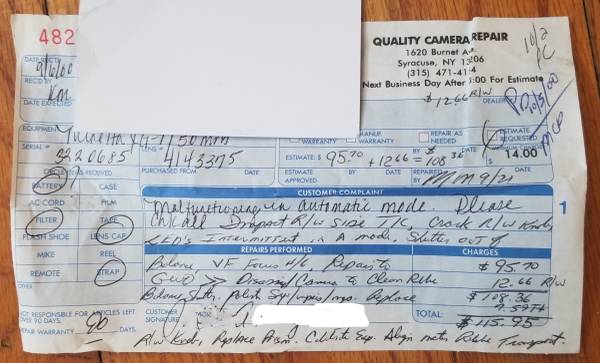 482
QUALITY CAMERA REPAIR
1620 Burnet Av
Syracuse, NY 13206
(315) 471-41
Next Business Day After 3:00 For Estimate
10/2
PC
DATE REC'D
9/6/00
REC'D BY
DATE EXPECTED
$12.66 R/W
DEALER
10/5/00
MCD
EQUIPMENT
50mm
WARRANTY
MANUF. WARRANTY
REPAIR AS NEEDED
ESTIMATE REQUESTED
$ 14.00
SERIAL #
3220685
LENS #
4143375
ESTIMATE: $ 95.70 + 12.66 = $ 108.36
BY DATE
CIRCLE ITEMS RECEIVED
PURCHASED FROM DATE
ESTIMATE APPROVED BY DATE
REPAIRED BY DATE
9/21
BATTERY CASE
AC CORD FILM
FILTER TAPE
FLASH SHOE LENS CAP
MIKE REEL
REMOTE STRAP
CUSTOMER COMPLAINT
Malfunctioning in automatic mode. Please
Ck all Impact R/W side T/C, Crack R/W Knob,
LED's Intermittent in A mode. Shutter out of
1
REPAIRS PERFORMED CHARGES
Balance VF Focus Repairs to $ 95.70
Disassy/Camera to Clean 12.66 R/W
Balance Shtr. Polish Replace $ 108.36
7.59
TOTAL: $115.95
NOT RESPONSIBLE FOR ARTICLES LEFT
OVER 90 DAYS.
REPAIR WARRANTY 90 DAYS.
CUSTOMER SIGNATURE
R/W Knob, Replace Prism. Calibrate Exp. Align meter Transport.